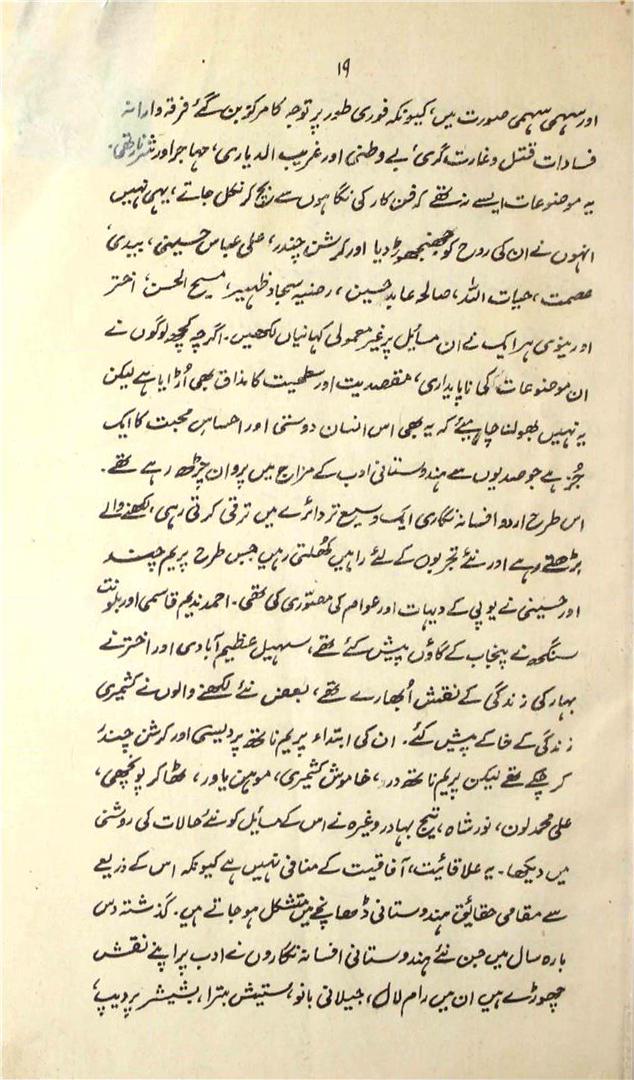 ۱۹
اور سہمی سہمی صورت میں، کیونکہ فوری طور پر توجہ کا مرکز بن گئے فرقہ وارانہ
فسادات قتل و غارت گری، بے وطنی اور غریب الدیاری، مہاجر اور شرنارتھی.
یہ موضوعات ایسے نہ تھے کہ فن کار کی نگاہوں سے بچ کر نکل جاتے، یہی نہیں
انہوں نے ان کی روح کو جھنجھوڑ دیا اور کرشن چندر، علی عباس حسینی، بیدی،
عصمت، حیات اللہ، صالحہ عابد حسین، رضیہ سجاد ظہیر، مسیح الحسن، اختر
اورینوی ہر ایک نے ان مسائل پر غیر معمولی کہانیاں لکھیں۔ اگرچہ کچھ لوگوں نے
ان موضوعات کی ناپایداری، مقصدیت اور سطحیت کا مذاق بھی اُڑایا ہے لیکن
یہ نہیں بھولنا چاہیئے کہ یہ بھی اس انسان دوستی اور احساس محبت کا ایک
جُز ہے جو صدیوں سے ہندوستانی ادب کے مزاج میں پروان چڑھ رہے تھے۔
اس طرح اردو افسانہ نگاری ایک وسیع تر دائرے میں ترقی کرتی رہی، لکھنے والے
بڑھتے رہے اور نئے تجربوں کے لئے راہیں کھُلتی رہیں جس طرح پریم چند
اور حسینی نے یوپی کے دیہات اور عوام کی مصوّری کی تھی۔ احمد ندیم قاسمی اور بلونت
سنگھ نے پنجاب کے گاؤں پیش کئے تھے، سہیل عظیم آبادی اور اختر نے
بہار کی زندگی کے نقش اُبھارے تھے، بعض نئے لکھنے والوں نے کشمیری
زندگی کے خاکے پیش کئے۔ ان کی ابتداء پریم ناتھ پردیسی اور کرشن چندر
کر چکے تھے لیکن پریم ناتھ در، خاموش کشمیری، موہن یاور، ٹھاکر پونچھی،
علی محمد لون، نور شاہ، تیج بہادر وغیرہ نے اس کے مسایل کو نئے حالات کی روشنی
میں دیکھا۔ یہ علاقائیت، آفاقیت کے منافی نہیں ہے کیونکہ اس کے ذریعے
سے مقامی حقایق ہندوستانی ڈھانچے میں متشکل ہو جاتے ہیں۔ گذشتہ دس
بارہ سال میں جن نئے ہندوستانی افسانہ نگاروں نے ادب پر اپنے نقش
چھوڑے ہیں ان میں رام لال، جیلانی بانو، ستیش بترا، بشیشر پردیپ،